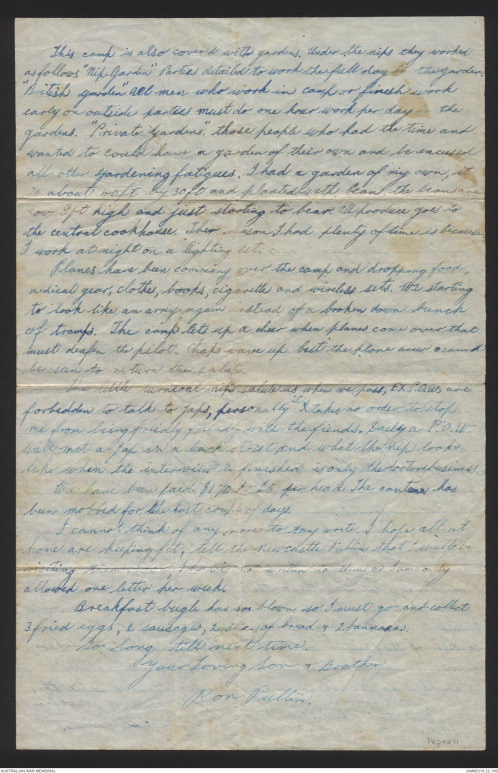 This camp is also covered with gardens. Under the nips they worked
as follows "Nip Garden" Parties detailed to work the full day in the garden,
"British garden" all men who work in camp or finish work
early on outside parties must do one hour work per day in the
gardens. "Private Gardens" those people who had the time and
wanted to could have a garden of their own and be excused
all other gardening fatigues. I had a garden of my own, it
is about 40ft by 30ft and planted with beans the beans are
now 3ft high and just starting to bear. All produce goes to
the central cookhouse. The reason I had plenty of time is because
I work at night on a lighting set.
Planes have been comming over the camp and dropping food,
medical gear, clothes, books, cigarette and wireless sets. We starting
to look like an army again instead of a broken down bunch
of tramps. The camp lets up a cheer when planes come over that
must deafen the pilot. Chaps wave up but the plane crew cannot
be seen to return the salute.
The little nips salute us when we pass, EX P.O.Ws are
forbidden to talk to Japs, personally it takes no order to stop
me from being friendly with the fiends. Daily a P.O.W.
will met a Jap in a back street and what the nip looks
like when the interview is finished is only the doctors business.
We have been paid per head. The canteen has
been mobbed for the last couple of days.
I cannot think of any more to say write. I hope all at
home are keeping fit, tell the Newcastle Rutlin that I will be
writing them as only
allowed one letter per week.
Breakfast bugle has so blown so I must go and collect
3 fried eggs, 2 sausages, 2 slices of bread & 2 bannanas.
So long till meat time.
Your Loving Son & Brother
Ron
PR04271
AUSTRALIAN WAR MEMORIAL